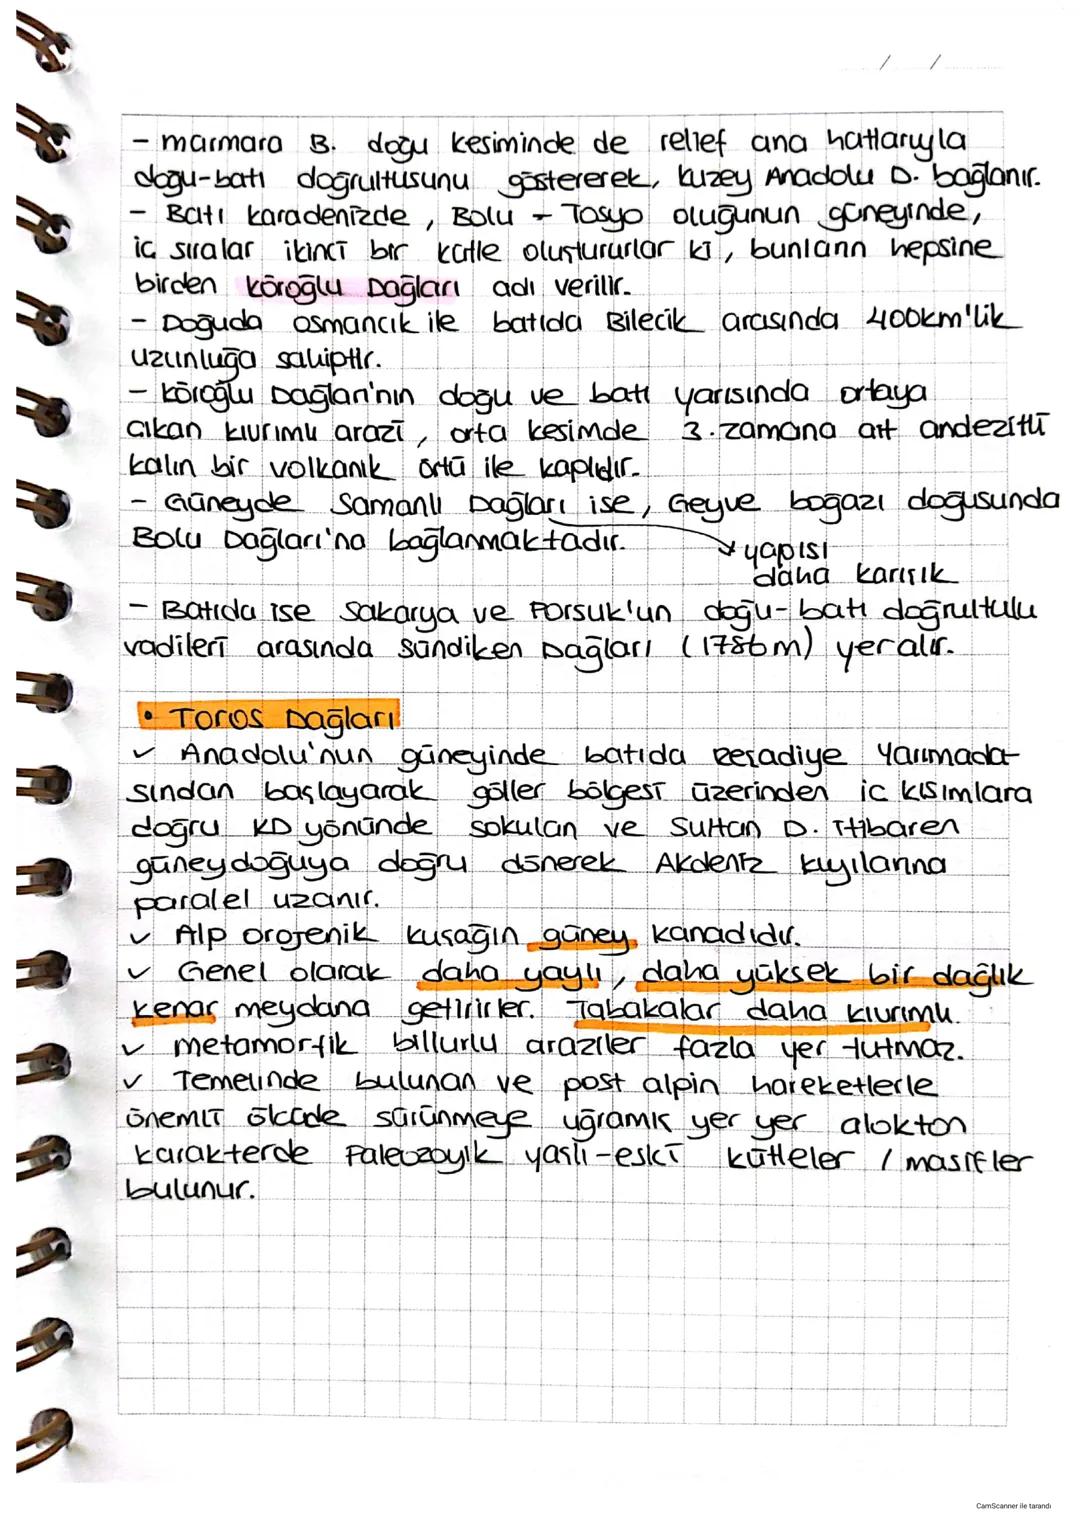 / /
- marmara B. doğu kesiminde de relief ana hatlarıyla
doğu-batı doğrultusunu göstererek, kuzey Anadolu D. bağlanır.
- Batı karadenizde, Bolu - Tosya oluğunun güneyinde,
iç sıralar ikinci bir kütle oluştururlar ki, bunların hepsine
birden köroğlu Dağları adı verilir.
- Doğuda osmancık ile batıda Bilecik arasında 400km'lik
uzunluğa sahiptir.
- köroğlu Dağları'nın doğu ve batı yarısında ortaya
çıkan kıvrımlı arazi, orta kesimde 3.zamana ait andezitli
kalın bir volkanik örtü ile kaplıdır.
- Güneyde Samanlı Dağları ise, Geyve boğazı doğusunda
Bolu Dağları'na bağlanmaktadır.
yapısı
daha karışık
- Batıda ise Sakarya ve Porsuk'un doğu-batı doğrultulu
vadileri arasında Sündiken Dağları (1786m) yer alır.
• Toros Dağları
✓ Anadolu'nun güneyinde batıda Reşadiye Yarımada-
sından başlayarak göller bölgesi üzerinden iç kısımlara
doğru KD yönünde sokulan ve Sultan D. itibaren
güneydoğuya doğru dönerek Akdeniz kıyılarına
paralel uzanır.
✓ Alp orojenik kuşağın güney kanadıdır.
✓ Genel olarak daha yaylı, daha yüksek bir dağlık
kenar meydana getirirler. Tabakalar daha kıvrımlı.
✓ metamorfik billurlu araziler fazla yer tutmaz.
✓ Temelinde bulunan ve post alpin hareketlerle
önemli ölçüde sürünmeye uğramış yer yer alokton
karakterde Paleozoyik yaşlı-eski kütleler / masifler
bulunur.
CamScanner ile tarandı